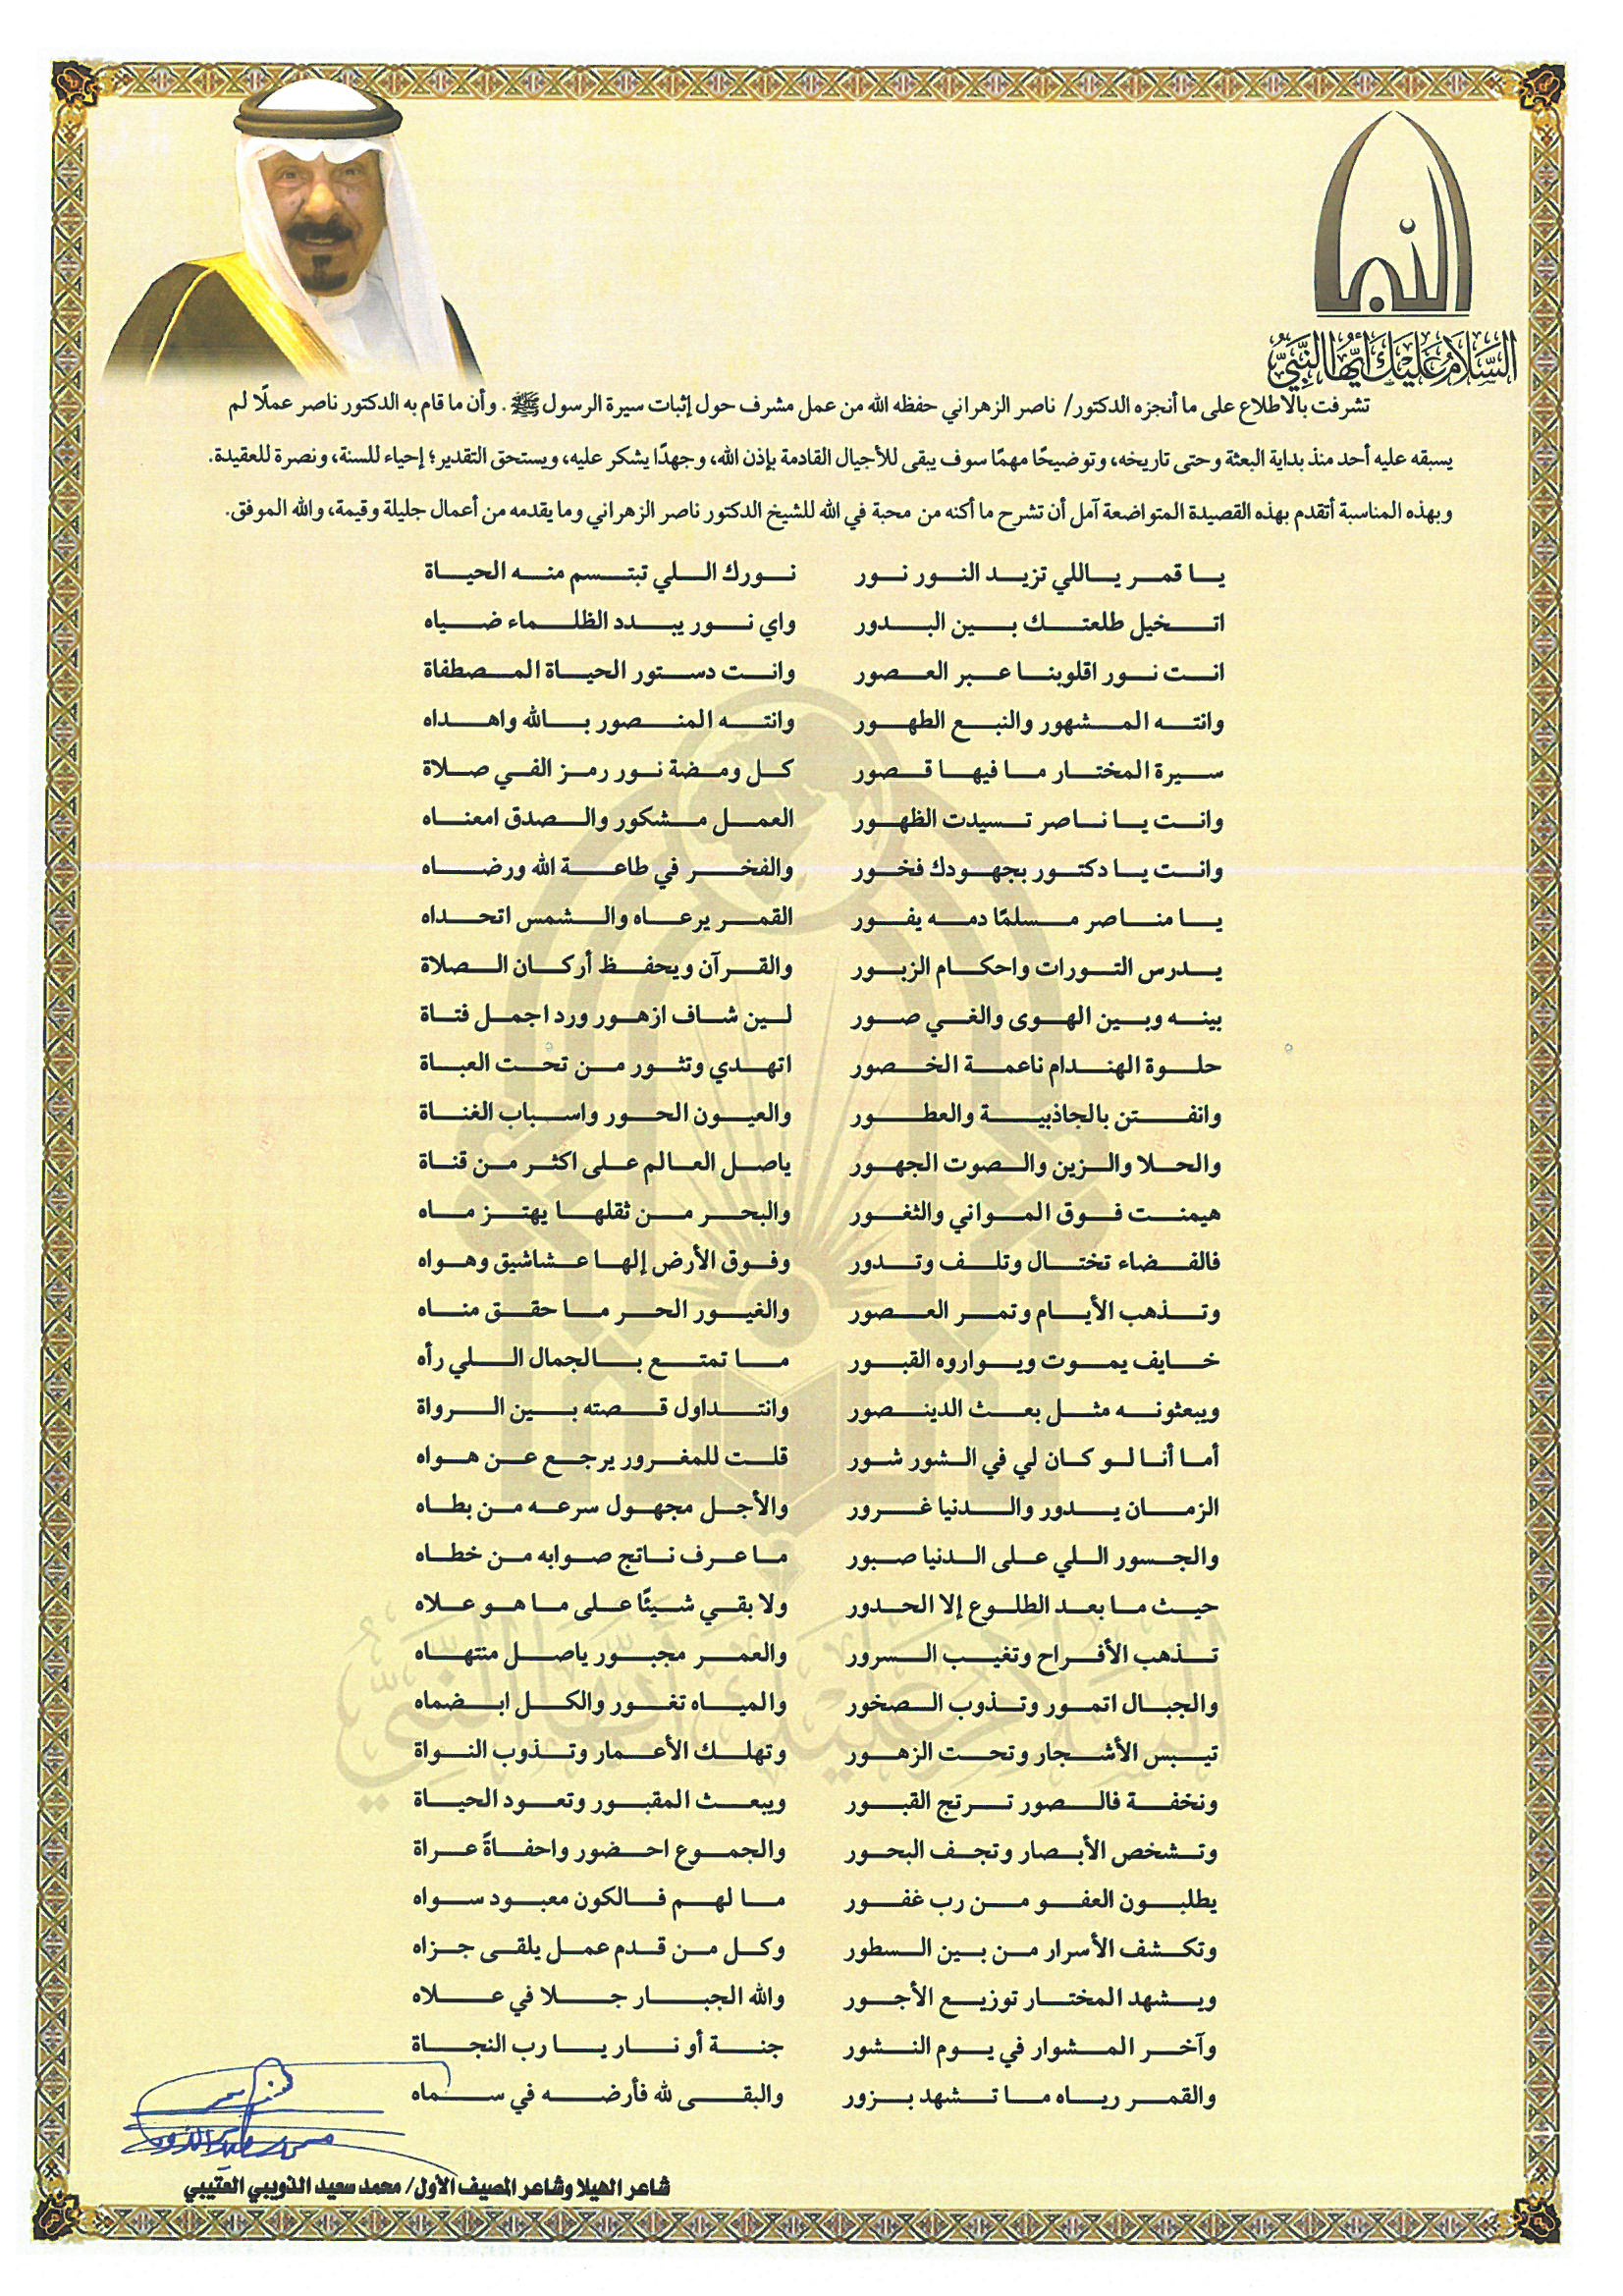 السلام عليك أيها النبي
تشرفت بالاطلاع على ما أنجزه الدكتور/ ناصر الزهراني حفظه الله من عمل مشرف حول إثبات سيرة الرسول ﷺ . وأن ما قام به الدكتور ناصر عملًا لم
يسبقه عليه أحد منذ بداية البعثة وحتى تاريخه، وتوضيحًا مهمًا سوف يبقى للأجيال القادمة بإذن الله، وجهدًا يشكر عليه، ويستحق التقدير؛ إحياء للسنة، ونصرة للعقيدة.
وبهذه المناسبة أتقدم بهذه القصيدة المتواضعة آمل أن تشرح ما أكنه من محبة في الله للشيخ الدكتور ناصر الزهراني وما يقدمه من أعمال جليلة وقيمة، والله الموفق.
يا قمر ياللي تزيد النور نور نورك اللي تبتسم منه الحياة
اتخيل طلعتك بين البدور واي نور يبدد الظلماء ضياه
انت نور اقلوبنا عبر العصور وانت دستور الحياة المصطفاة
وانته المشهور والنبع الطهور وانته المنصور بالله واهداه
سيرة المختار ما فيها قصور كل ومضة نور رمز الفي صلاة
وانت يا ناصر تسيدت الظهور العمل مشكور والصدق امعناه
وانت يا دكتور بجهودك فخور والفخر في طاعة الله ورضاه
يا مناصر مسلمًا دمه يفور القمر يرعاه والشمس اتحداه
يدرس التورات واحكام الزبور والقرآن ويحفظ أركان الصلاة
بينه وبين الهوى والغي صور لين شاف ازهور ورد اجمل فتاة
حلوة الهندام ناعمة الخصور اتهدي وتثور من تحت العباة
وانفتن بالجاذبية والعطور والعيون الحور واسباب الغناة
والحلا والزين والصوت الجهور ياصل العالم على اكثر من قناة
هيمنت فوق المواني والثغور والبحر من ثقلها يهتز ماه
فالفضاء تختال وتلف وتدور وفوق الأرض إلها عشاشيق وهواه
وتذهب الأيام وتمر العصور والغيور الحر ما حقق مناه
خايف يموت ويواروه القبور ما تمتع بالجمال اللي رأه
ويبعثونه مثل بعث الدينصور وانتداول قصته بين الرواة
أما أنا لو كان لي في الشور شور قلت للمغرور يرجع عن هواه
الزمان يدور والدنيا غرور والأجل مجهول سرعه من بطاه
والجسور اللي على الدنيا صبور ما عرف ناتج صوابه من خطاه
حيث ما بعد الطلوع إلا الحدور ولا بقي شيئًا على ما هو علاه
تذهب الأفراح وتغيب السرور والعمر مجبور ياصل منتهاه
والجبال اتمور وتذوب الصخور والمياه تغور والكل ابضماه
تيبس الأشجار وتحت الزهور وتهلك الأعمار وتذوب النواة
ونخفة فالصور ترتج القبور ويبعث المقبور وتعود الحياة
وتشخص الأبصار وتجف البحور والجموع احضور واحفاةً عراة
يطلبون العفو من رب غفور ما لهم فالكون معبود سواه
وتكشف الأسرار من بين السطور وكل من قدم عمل يلقى جزاه
ويشهد المختار توزيع الأجور والله الجبار جلا في علاه
وآخر المشوار في يوم النشور جنة أو نار يا رب النجاة
والقمر رياه ما تشهد بزور والبقى لله فأرضه في سماه
شاعر الهيلا وشاعر المصيف الأول/ محمد سعيد الذويبي العتيبي